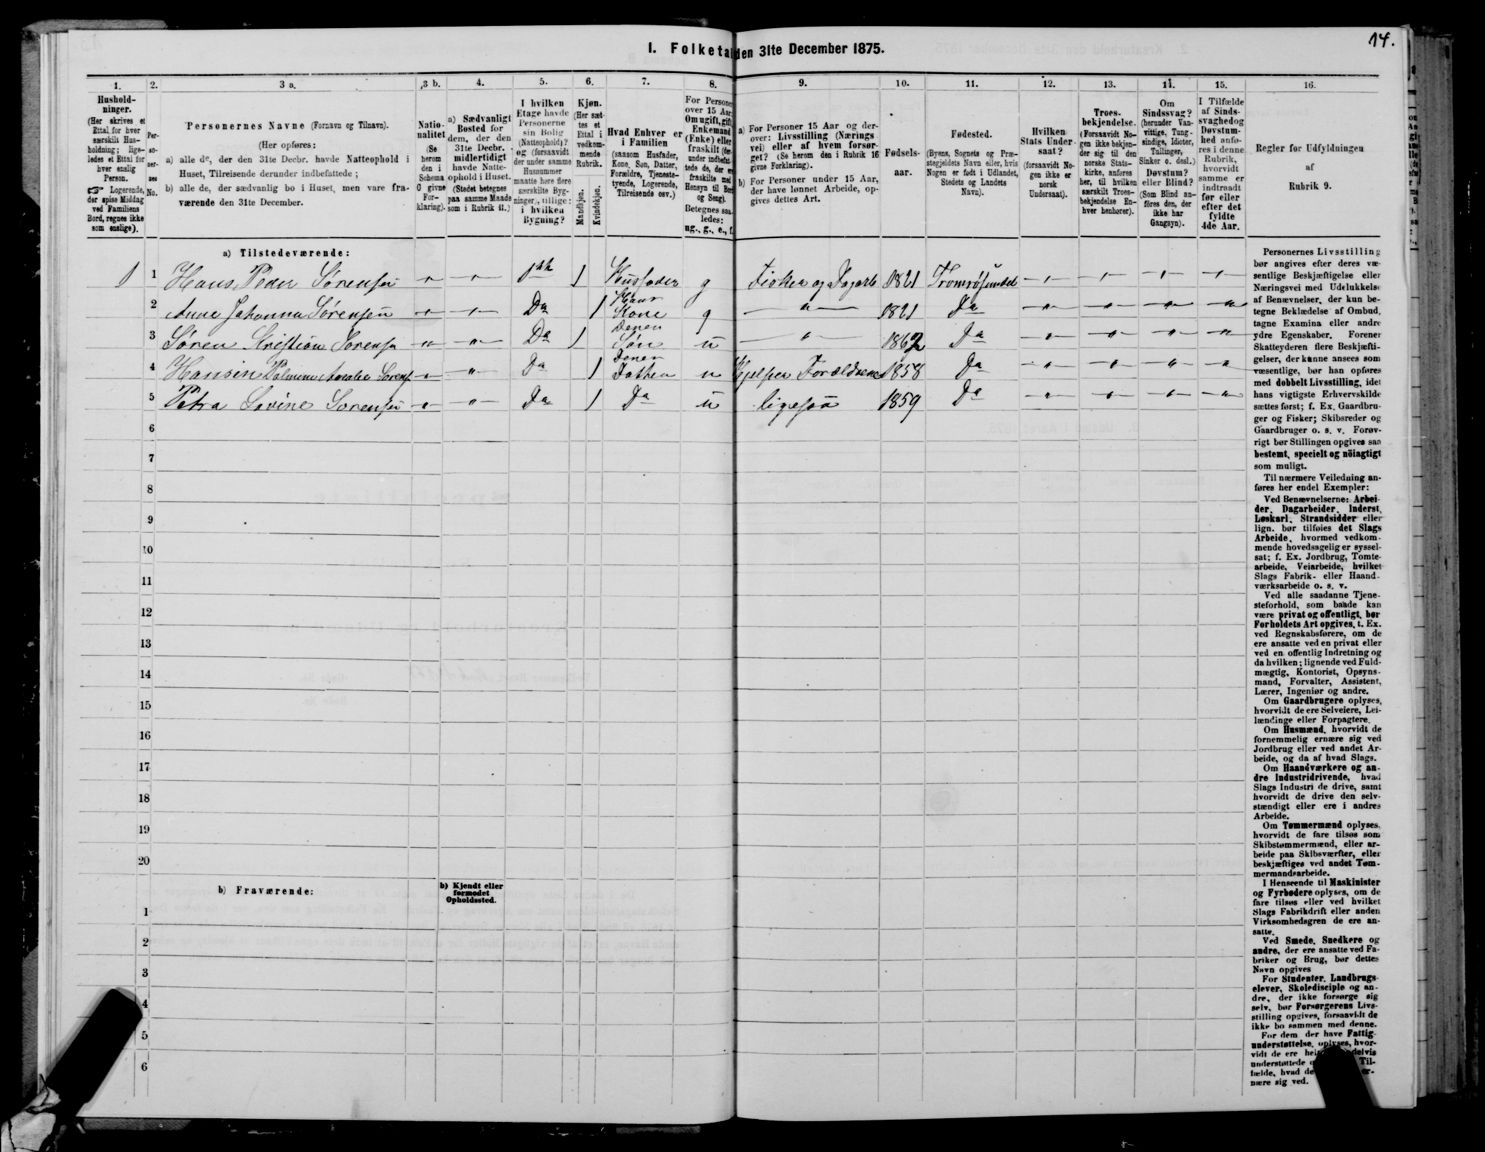 14.
I. Folketal den 31te December 1875.
1.
2.
3 a.
3 b.
4.
5.
6.
7.
8.
9.
10.
11.
12.
13.
14.
15.
16.
Hushold-
ninger.
(Her skrives et
Ettal for hver
særskilt Hus-
holdning; lige-
ledes et Ettal for
hver enslig
Person.
☞ Logerende,
der spise Middag
ved Familiens
Bord, regnes ikke
som enslige).
Per-
so-
ner-
nes
No.
Personernes Navne (Fornavn og Tilnavn).
(Her opføres:
a) alle de, der den 31te Decbr. havde Natteophold i
Huset, Tilreisende derunder indbefattede;
b) alle de, der sædvanlig bo i Huset, men vare fra-
værende den 31te December.
Natio-
nalitet
(Se
herom
den i
Schema
O givne
For-
klaring).
a) Sædvanligt
Bosted for
dem, der den
31te Decbr.
midlertidigt
havde Natte-
ophold i Huset.
(Stedet betegnes
paa samme Maade
som i Rubrik 11.)
I hvilken
Etage havde
Personerne
sin Bolig
(Natteophold)?
og (forsaavidt
der under samme
Husnummer
maatte høre flere
særskilte Byg-
ninger, tillige:
i hvilken
Bygning?
Kjøn.
(Her sæt-
tes et
Ettal i
vedkom-
mende
Rubrik.
Mandkjøn.
Kvindekjøn.
Hvad Enhver er
i Familien
(saasom Husfader,
Kone, Søn, Datter,
Forældre, Tjeneste-
tyende, Logerende,
Tilreisende osv.)
For Personer
over 15 Aar:
Om ugift, gift,
Enkemand
(Enke) eller
fraskilt (der-
under indbefat-
tede de, der ere
fraskilte med
Hensyn til Bord
og Seng).
Betegnes saa-
ledes:
ug., g., e., f.
a) For Personer 15 Aar og der-
over: Livsstilling (Nærings-
vei) eller af hvem forsør-
get? (Se herom den i Rubrik 16
givne Forklaring).
b) For Personer under 15 Aar,
der have lønnet Arbeide, op-
gives dettes Art.
Fødsels-
aar.
Fødested.
(Byens, Sognets og Præ-
stegjeldets Navn eller, hvis
Nogen er født i Udlandet,
Stedets og Landets
Navn).
Hvilken
Stats Under-
saat?
(forsaavidt No-
gen ikke er
norsk
Undersaat).
Troes-
bekjendelse.
(Forsaavidt No-
gen ikke bekjen-
der sig til den
norske Stats-
kirke, anføres
her, til hvilken
særskilt Troes-
bekjendelse En-
hver henhører).
Om
Sindssvag?
(herunder Van-
vittige, Tung-
sindige, Idioter,
Tullinger,
Sinker o. desl.)
Døvstum?
eller Blind?
(Som Blind an-
føres den, der
ikke har
Gangsyn).
I Tilfælde
af Sinds-
svaghed og
Døvstum-
hed anfø-
res i denne
Rubrik,
hvorvidt
samme er
indtraadt
før eller
efter det
fyldte
4de Aar.
Regler for Udfyldningen
af
Rubrik 9.
a) Tilstedeværende:
1 1 Hans Peder Sørensen " " 1ste 1 Husfader g Fisker og 1821 Tromsøsundet " " " "
2 Ane Johanna Sørensen " " Do 1 Hans Kone g " 1821 Do " " " "
3 Søren Kristian Sørensen " " Do 1 Deres Søn u " 1862 Do " " " "
4 Hansin Palmine Amalie Sørens " " Do 1 Deres Datter u Hjelper Forældrene 1858 Do " " " "
5 Petra Lovine Sørensen " " Do 1 Do u ligesaa 1859 Do " " " "
6
7
8
9
10
11
12
13
14
15
16
17
18
19
20
b) Fraværende:
b) Kjendt eller
formodet
Opholdssted.
1
2
3
4
5
6
Personernes Livsstilling
bør angives efter deres væ-
sentlige Beskjæftigelse eller
Næringsvei med Udelukkelse
af Benævnelser, der kun be-
tegne Beklædelse af Ombud,
tagne Examina eller andre
ydre Egenskaber. Forener
Skatteyderen flere Beskjæfti-
gelser, der kunne ansees som
væsentlige, bør han opføres
med dobbelt Livsstilling, idet
hans vigtigste Erhvervskilde
sættes først; f. Ex. Gaardbru-
ger og Fisker; Skibsreder og
Gaardbruger o. s. v. Forøv-
rigt bør Stillingen opgives saa
bestemt, specielt og nöiagtigt
som muligt.
Til nærmere Veiledning an-
føres her endel Exempler:
Ved Benævnelserne: Arbei-
der, Dagarbeider, Inderst,
Løskarl, Strandsidder eller
lign. bør tilføies det Slags
Arbeide, hvormed vedkom-
mende hovedsagelig er syssel-
sat; f. Ex. Jordbrug, Tomte-
arbeide, Veiarbeide, hvilket
Slags Fabrik- eller Haand-
værksarbeide o. s. v.
Ved alle saadanne Tjene-
steforhold, som baade kan
være privat og offentligt, bør
Forholdets Art opgives, t. Ex.
ved Regnskabsførere, om de
ere ansatte ved en privat eller
ved en offentlig Indretning og
da hvilken; lignende ved Fuld-
mægtig, Kontorist, Opsyns-
mand, Forvalter, Assistent,
Lærer, Ingeniør og andre.
Om Gaardbrugere oplyses,
hvorvidt de ere Selveiere, Lei-
lændinge eller Forpagtere.
Om Husmænd, hvorvidt de
fornemmelig ernære sig ved
Jordbrug eller ved andet Ar-
beide, og da af hvad Slags.
Om Haandværkere og an-
dre Industridrivende, hvad
Slags Industri de drive, samt
hvorvidt de drive den selv-
stændigt eller ere i andres
Arbeide.
Om Tømmermænd oplyses,
hvorvidt de fare tilsøs som
Skibstømmermænd, eller ar-
beide paa Skibsværfter, eller
beskjæftiges ved andet Tøm-
mermandsarbeide.
I Henseende til Maskinister
og Fyrbødere oplyses, om de
fare tilsøs eller ved hvilket
Slags Fabrikdrift eller anden
Virksomhedsgren de ere an-
satte.
Ved Smede, Snedkere og
andre, der ere ansatte ved Fa-
briker og Brug, bør dettes
Navn opgives
For Studenter, Landbrugs-
elever, Skoledisciple og an-
dre, der ikke forsørge sig
selv, bør Forsørgerens Livs-
stilling opgives, forsaavidt de
ikke bo sammen med denne.
For dem, der have Fattig-
understøttelse, oplyses, hvor-
vidt de ere
understøttede Til-
fælde, hvad de
nære sig ved.